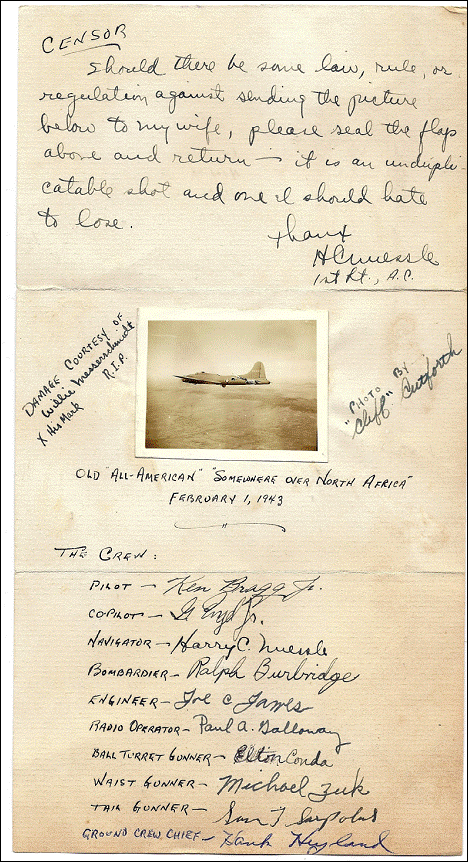 CENSOR
Should there be some law, rule, or
regulation against sending the picture
below to my wife, please seal the flaps
above and return — it is an undupli-
catable shot and one I should hate
to lose.
thanx
HCNuessle
1st Lt., A.C.
DAMAGE COURTESY OF
Willie Messerschmidt
R.I.P.
X His Mark
"PHOTO BY
Cliff" Cutforth
OLD "ALL-AMERICAN" "SOMEWHERE OVER NORTH AFRICA"
FEBRUARY 1, 1943
THE CREW:
PILOT — Ken Bragg Jr.
COPILOT — G Jr.
NAVIGATOR — Harry C. Nuessle
BOMBARDIER — Ralph Burbridge
ENGINEER — Joe C James
RADIO OPERATOR — Paul A. Galloway
BALL TURRET GUNNER — Elton Conda
WAIST GUNNER — Michael Zuk
TAIL GUNNER — Sam T Sarpolus
GROUND CREW CHIEF — Hank Hyland